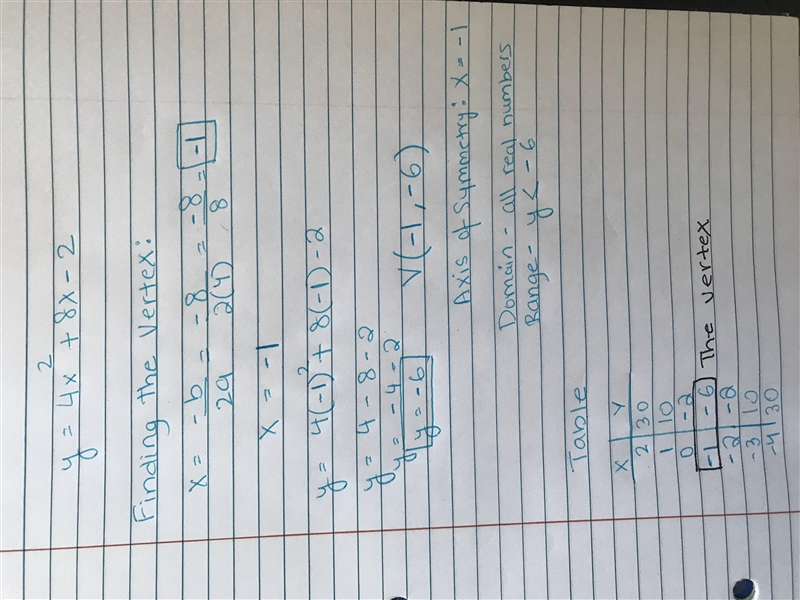 y = 4x² + 8x - 2
Finding the Vertex:
x = -b/2a = -8/2(4) = -8/8 = -1
x = -1
y = 4(-1)² + 8(-1) - 2
y = 4 - 8 - 2
y = -4 - 2
y = -6
V(-1, -6)
Axis of Symmetry: x = -1
Domain - all real numbers
Range - y < -6
Table
X | Y
2 | 30
1 | 10
0 | -2
-1 | -6 The vertex
-2 | -2
-3 | 10
-4 | 30